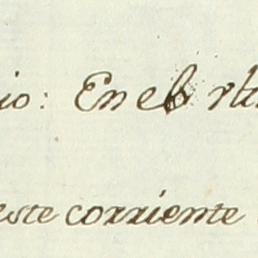 io: En el
este corriente